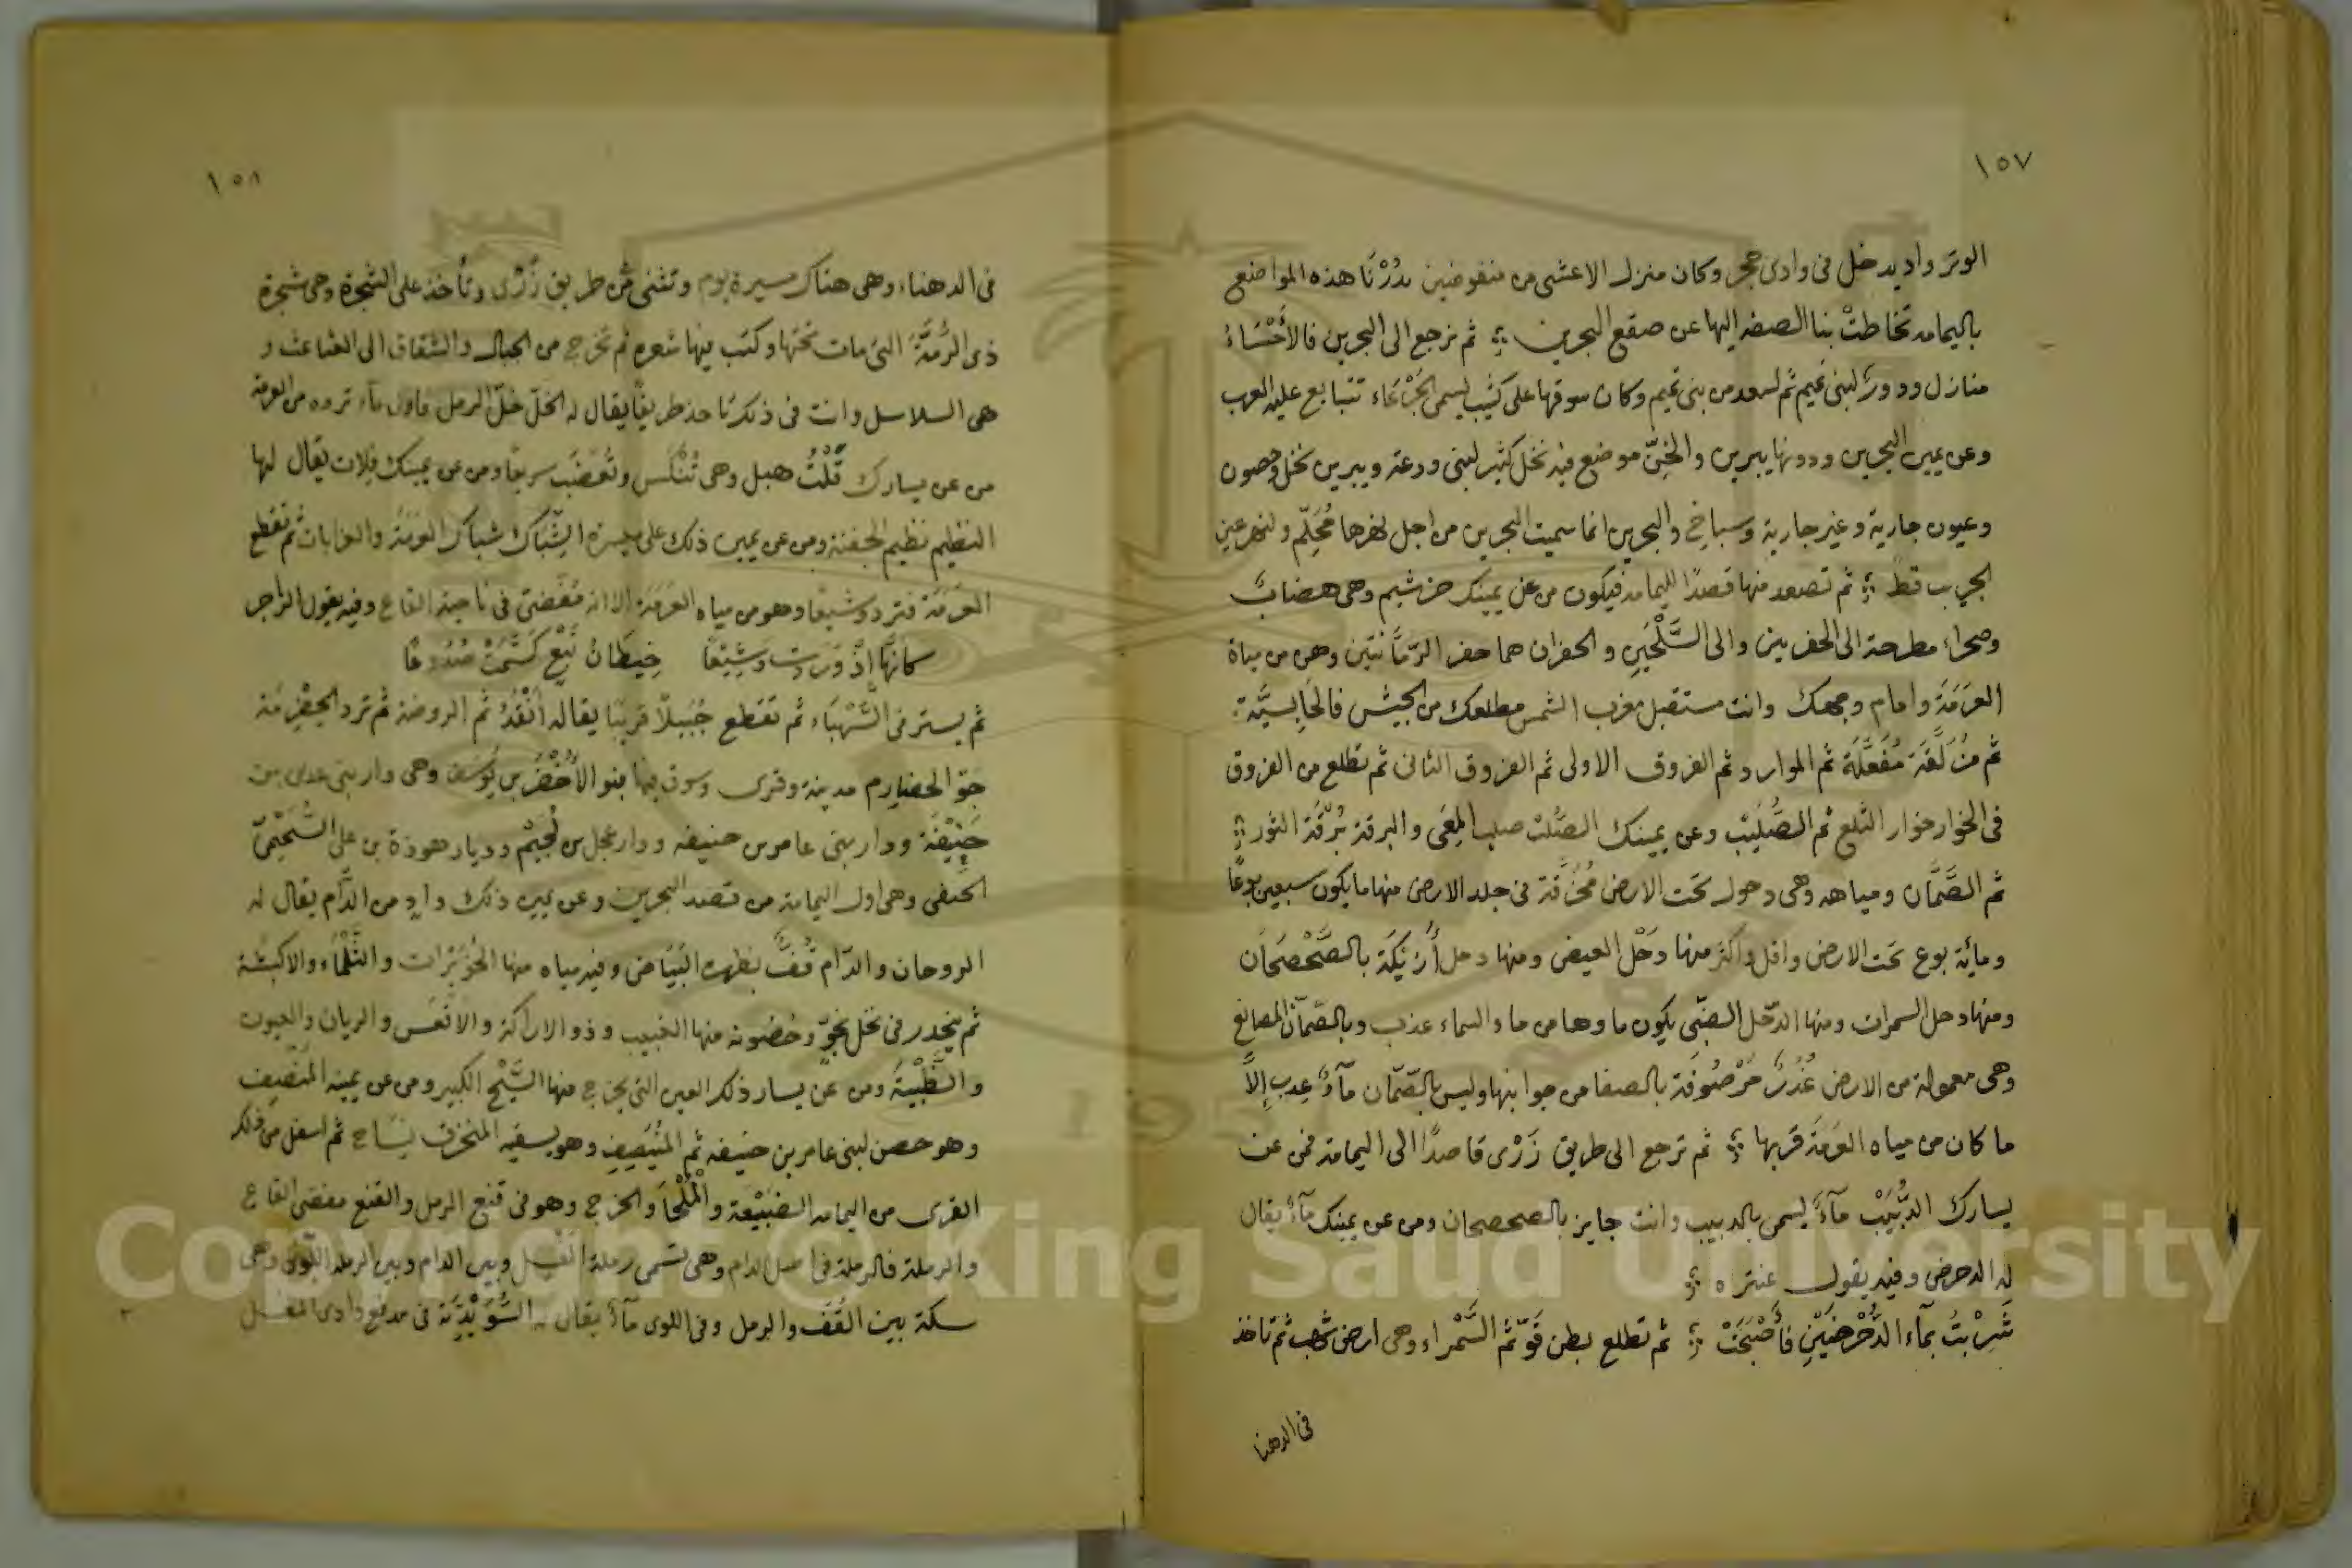 ١٥٧
الوتر واد يدخل فى وادى حجر وكان منزل الاعشى من منفوضين بدُرْنَا هذه المواضع
باليمامه تخاطتْ بنا الصفه اليها عن صقع البحرين ؛ ثم نرجع الى البحرين فالأَحْسَاءُ
منازل ودورٌ لبنى تميم ثم لسعد من بنى تميم وكان سوقها على كثيب يسمى الجَرْعَاء تتبايع عليه العرب
وعن يمين البحرين ودونها يبرين والخِنّ موضع فيه نخل كثير لبنى ودعة ويبرين نخل وحصون
وعيون جارية وغير جارية وسباخ والبحرين انما سميت البحرين من اجل نهرها مُحَلِّم ولنهر عين
الجريب قط ؛ ثم تصعد منها قصدًا لليمامه فيكون من عن يمينك خرشيم وهى هضاب
وصحراء مطرحة الى الحفرين والى السَّلْحَيِن والحفران هما حفر الرّمَّانتَين وهى من مياة
العَرَمَةَ وامام وجهك وانت مستقبل مغرب الشمس مطلعك من الجيش فالحَابِسيَّة
ثم مُزَلَّقَة مُفَعَّلَة ثم الموارد ثم الفروق الاولى ثم الفروق الثانى ثم تطلع من الفروق
فى الخوار خوار الثلع ثم الصُّلَيْب وعن يمينك الصُّلْب صلب المِعَى والبرقة بُرْقَة الثور ؛
ثم الصَّمَّان ومياهه وهى دحول تحت الارض مُخَرَّقة فى جلد الارض منها ما يكون سبعين بوعًا
ومأية بوع تحت الارض واقل واكثر منها دَحْل العيض ومنها دحل أَرَيْكَة بالصَّحْصَحَان
ومنها دحل السمرات ومنها الدّحل الضبّى يكون ماوها من ماء السماء عذب وبالصّمّان المصانع
وهى معمولة من الارض غُدُرٌ مَرْصُوفَة بالصفا من جوانبها وليس بالصّمّان مآءٌ عذب إلاّ
ما كان من مياه العَرَمَةَ قربها ؛ ثم ترجع الى طريق زَرْى قاصدًا الى اليمامة فمن عن
يسارك الدُّبَيْبْ مآءٌ يسمى بالدبيب وانت جايز بالصحصحان ومن عن يمينك مآءٌ يقال
له الدحرض وفيه يقول عنتره ؛
شَرِبْتُ بمآء الدُّحْرُضَيْنِ فأَصْبَحَتْ ؛ ثم تطلع بطن قَوّ ثم السَّمْراء وهى ارض شهب ثم تاخذ
فى الدهنا
١٥٨
فى الدهناء وهى هناك مسيرة يوم وتثنى من طريق زَرْى وتأخذ على الشجرة وهى شجرة
ذى الرُّمَّةَ التى مات تحتها وكتب فيها شعره ثم تخرج من الجبال والشقاق الى العثاعث و
هى السلاسل وانت فى ذلك تاخذ طريقًا يقال له الخلّ خلّ الرمل فاول مآء ترده من العرمة
من عن يسارك قَلْتُ هبل وهى تُنْكَس وتُغضَب سريعًا ومن عن يمينك قلات يقال لها
النظيم نظيم الجفنة ومن عن يمين ذلك على ميسرة الشِّبَاك شباك العرمَةُ والغرابات ثم تقطع
العَرَمَة فترد وشيعًا وهو من مياه العرَمَة الا انه مُفضى فى ناحية القاع وفيه يقول الراجز
كأنّها إذْ وَرَدَت وَشِيْعًا خِيطَانُ نَبْع كَتَّمَتْ صُدُوعًا
ثم يستر فى السَّهْبَاء ثم تقطع جُبَيلاً قريبًا يقال له أَنْقَدُ ثم الروضة ثم ترد الحِضْرِمَة
جَوّ الحضارم مدينة وقرى وسوق فيها بنو الأُخَيْضِر بن يُوسُف وهى دار بنى عدى بن
حَنِيْفَة ودار بنى عامر بن حنيفه ودار عجل بن لُجَيْم وديار هوذة بن على السُّحَيْمِىّ
الحنفى وهى اول اليمامة من قصد البحرين وعن يمين ذلك وادٍ من الدَّام يقال له
الروحان والدّام قُفٌّ بظهره البَيَاض وفيه مياه منها الخُوَيْرَات والثَّلْمَاء والاكبشة
ثم ينحدر فى نخل بجوّ وحُصُونه منها الخبيب وذو الاراكة والاقعَس والريان والعيون
والظَّبْيَة ومن عن يسار ذلك العين التى يخرج منها السَّيْح الكبير ومن عن يمينه المنَصِيف
وهو حصن لبنى عامر بن حنيفه ثم المُنَيصِيف وهو يسقيه المنخرق بنساح ثم اسفل من ذلك
القرى من اليمامه الضبَيْعة والمُلْحَا والخرج وهو فى قنع الرمل والقنع مفضى القاع
والرملة فالرملة فى اصل الدام وهى تسمى رملة المغسل وبين الدام وبين الرمله اللّوى وهى
سكة بين القُفّ والرمل وفى اللوى مآءٌ يقال له السُّوَيْدِيَة فى مدفع وادى المغسل